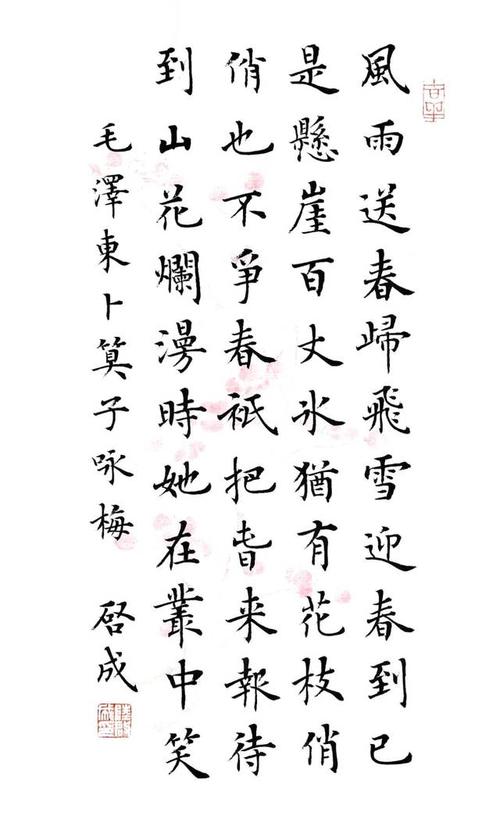 風雨送春歸飛雪迎春到已
是懸崖百丈氷猶有花枝俏
俏也不爭春祇把旾来報待
到山花爛漫時她在叢中笑
毛澤東卜算子咏梅 啓成
吉羊